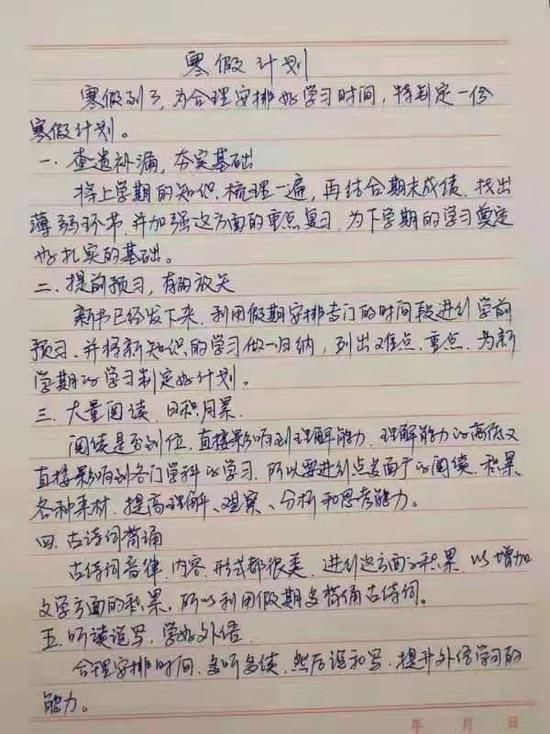 寒假计划
寒假到了,为合理安排好学习时间,特制定一份
寒假计划。
一、查遗补漏,夯实基础
将上学期的知识、梳理一遍,再结合期末成绩、找出
薄弱环节、并加强这方面的重点复习、为下学期的学习奠定
好扎实的基础。
二、提前预习,有的放矢
新书已经发下来、利用假期安排专门的时间段进行学前
预习、并将新知识的学习做一归纳,列出难点、重点、为新
学期的学习制定好计划。
三、大量阅读、日积月累
阅读是否到位、直接影响到理解能力、理解能力的高低又
直接影响到各门学科的学习、所以要进行点卷面广的阅读、积累
各种素材、提高理解、观察、分析和思考能力。
四、古诗词背诵
古诗词音律、内容、形式都很美、进行这方面的积累、以增加
文学方面的积累,所以利用假期多背诵古诗词。
五、听读说写,学好外语
合理安排时间、多听多读、然后说和写、提升外语学习的
能力。
年 月 日